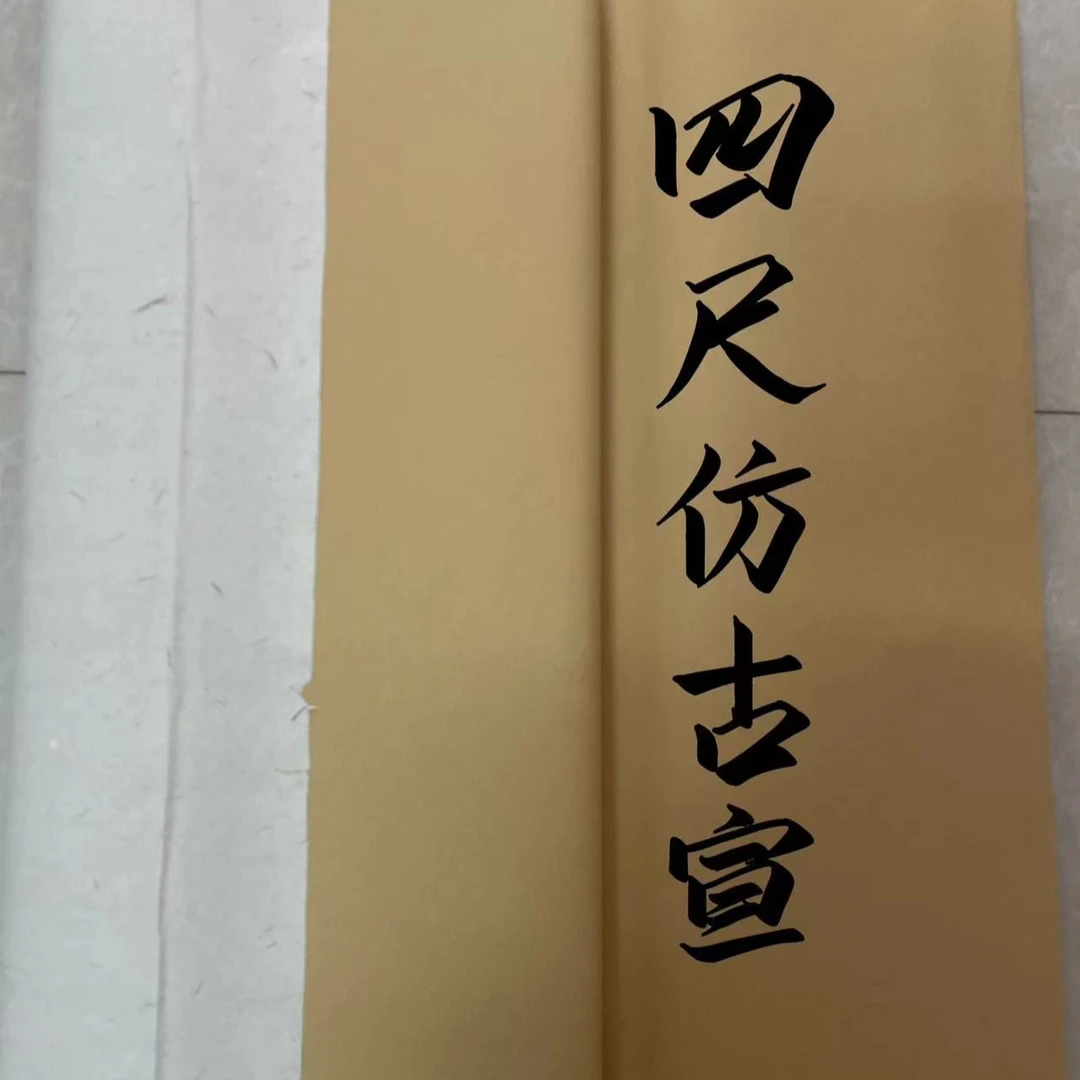 四尺仿古宣